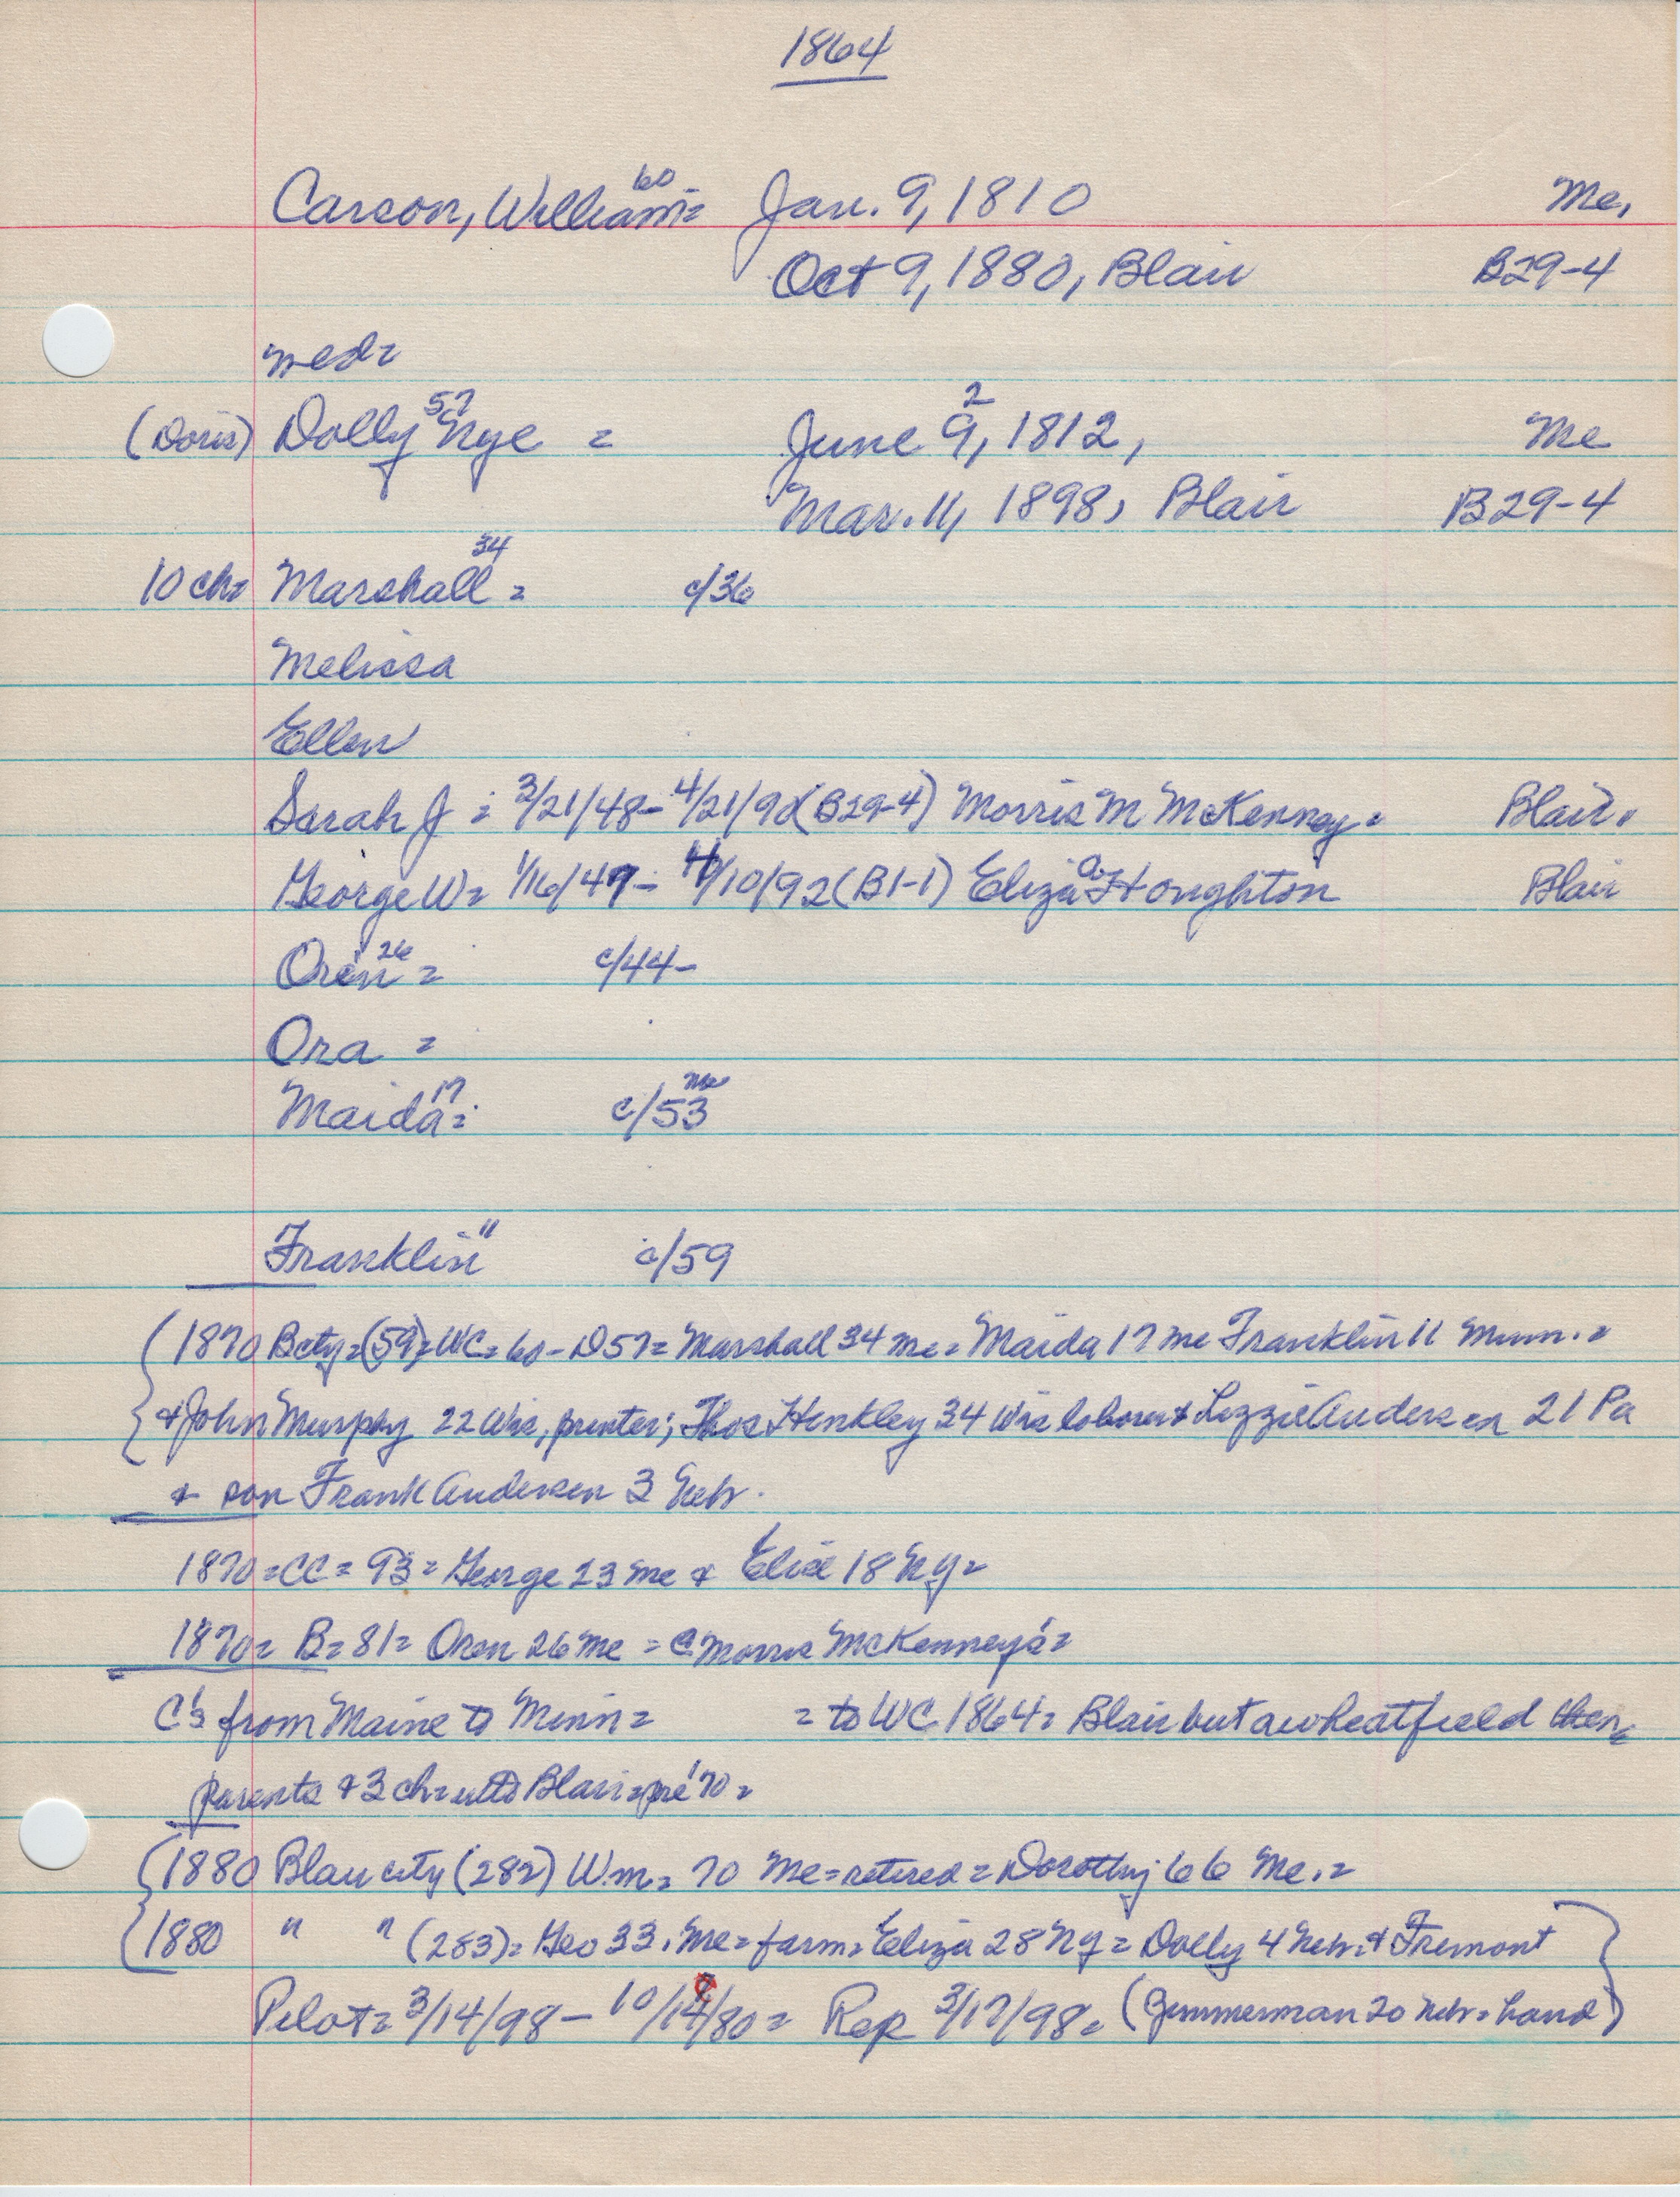 1864
Carson, William 60 = Jan. 9, 1810 Me.
Oct 9, 1880, Blair B29-4
med=
(Doris) Dolly 57 Nye = June 9 2, 1812, Me
Mar. 11, 1898, Blair B29-4
10 ch= Marshall 34 = c/36
Melissa
Ellen
Sarah J = 3/21/48 - 4/21/90 (B29-4) Morris M McKenney = Blair.
George W = 1/16/47 - 11/10/92 (B1-1) Eliza A. Houghton Blair
Oren 26 = c/44-
Ora =
Maida 17 = c/53 Me
Franklin 11 c/59
(1870 Bcty = (59) = WC = 60 - D57 = Marshall 34 Me = Maida 17 Me Franklin 11 Minn. =
& John Murphy 22 Wis, printer; Thos Hinkley 34 Wis laborer & Lizzie Andersen 21 Pa
& son Frank Andersen 3 Neb.
1870 = CC = 93 = George 23 Me & Eliza 18 NY =
1870 = B = 81 = Oren 26 Me = @ Morris McKenney's =
C's from Maine to Minn = = to WC 1864 = Blair but a wheatfield then =
parents & 3 ch = Blair = pre '70 =
(1880 Blair city (282) Wm = 70 Me = retired = Dorothy 66 Me. =
(1880 " " (283) = Geo 33. Me = farm = Eliza 28 NY = Dolly 4 Neb. & Fremont
Pilot = 3/14/98 - 10/14/80 = Rep 3/17/98 = (Gimmerman 20 Neb = hand)